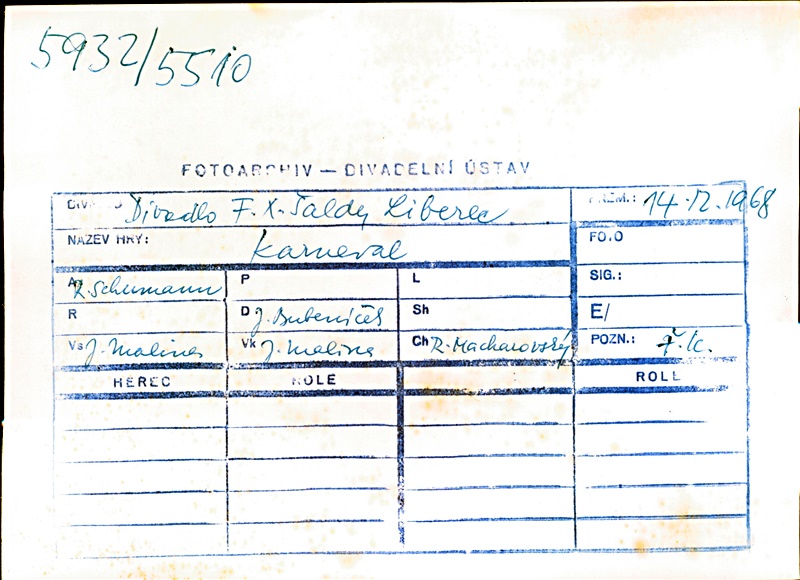 5932/5510
FOTOARCHIV — DIVADELNÍ ÚSTAV
Divadlo F. X. Šaldy Liberec
PREM.: 14.12.1968
NÁZEV HRY: Karneval
FOTO
A R. Schumann P L SIG.:
R D J. Bubeníček Sh E/
Vs J. Malina Vk J. Malina Ch R. Macharovský POZN.:
HEREC ROLE ROLE